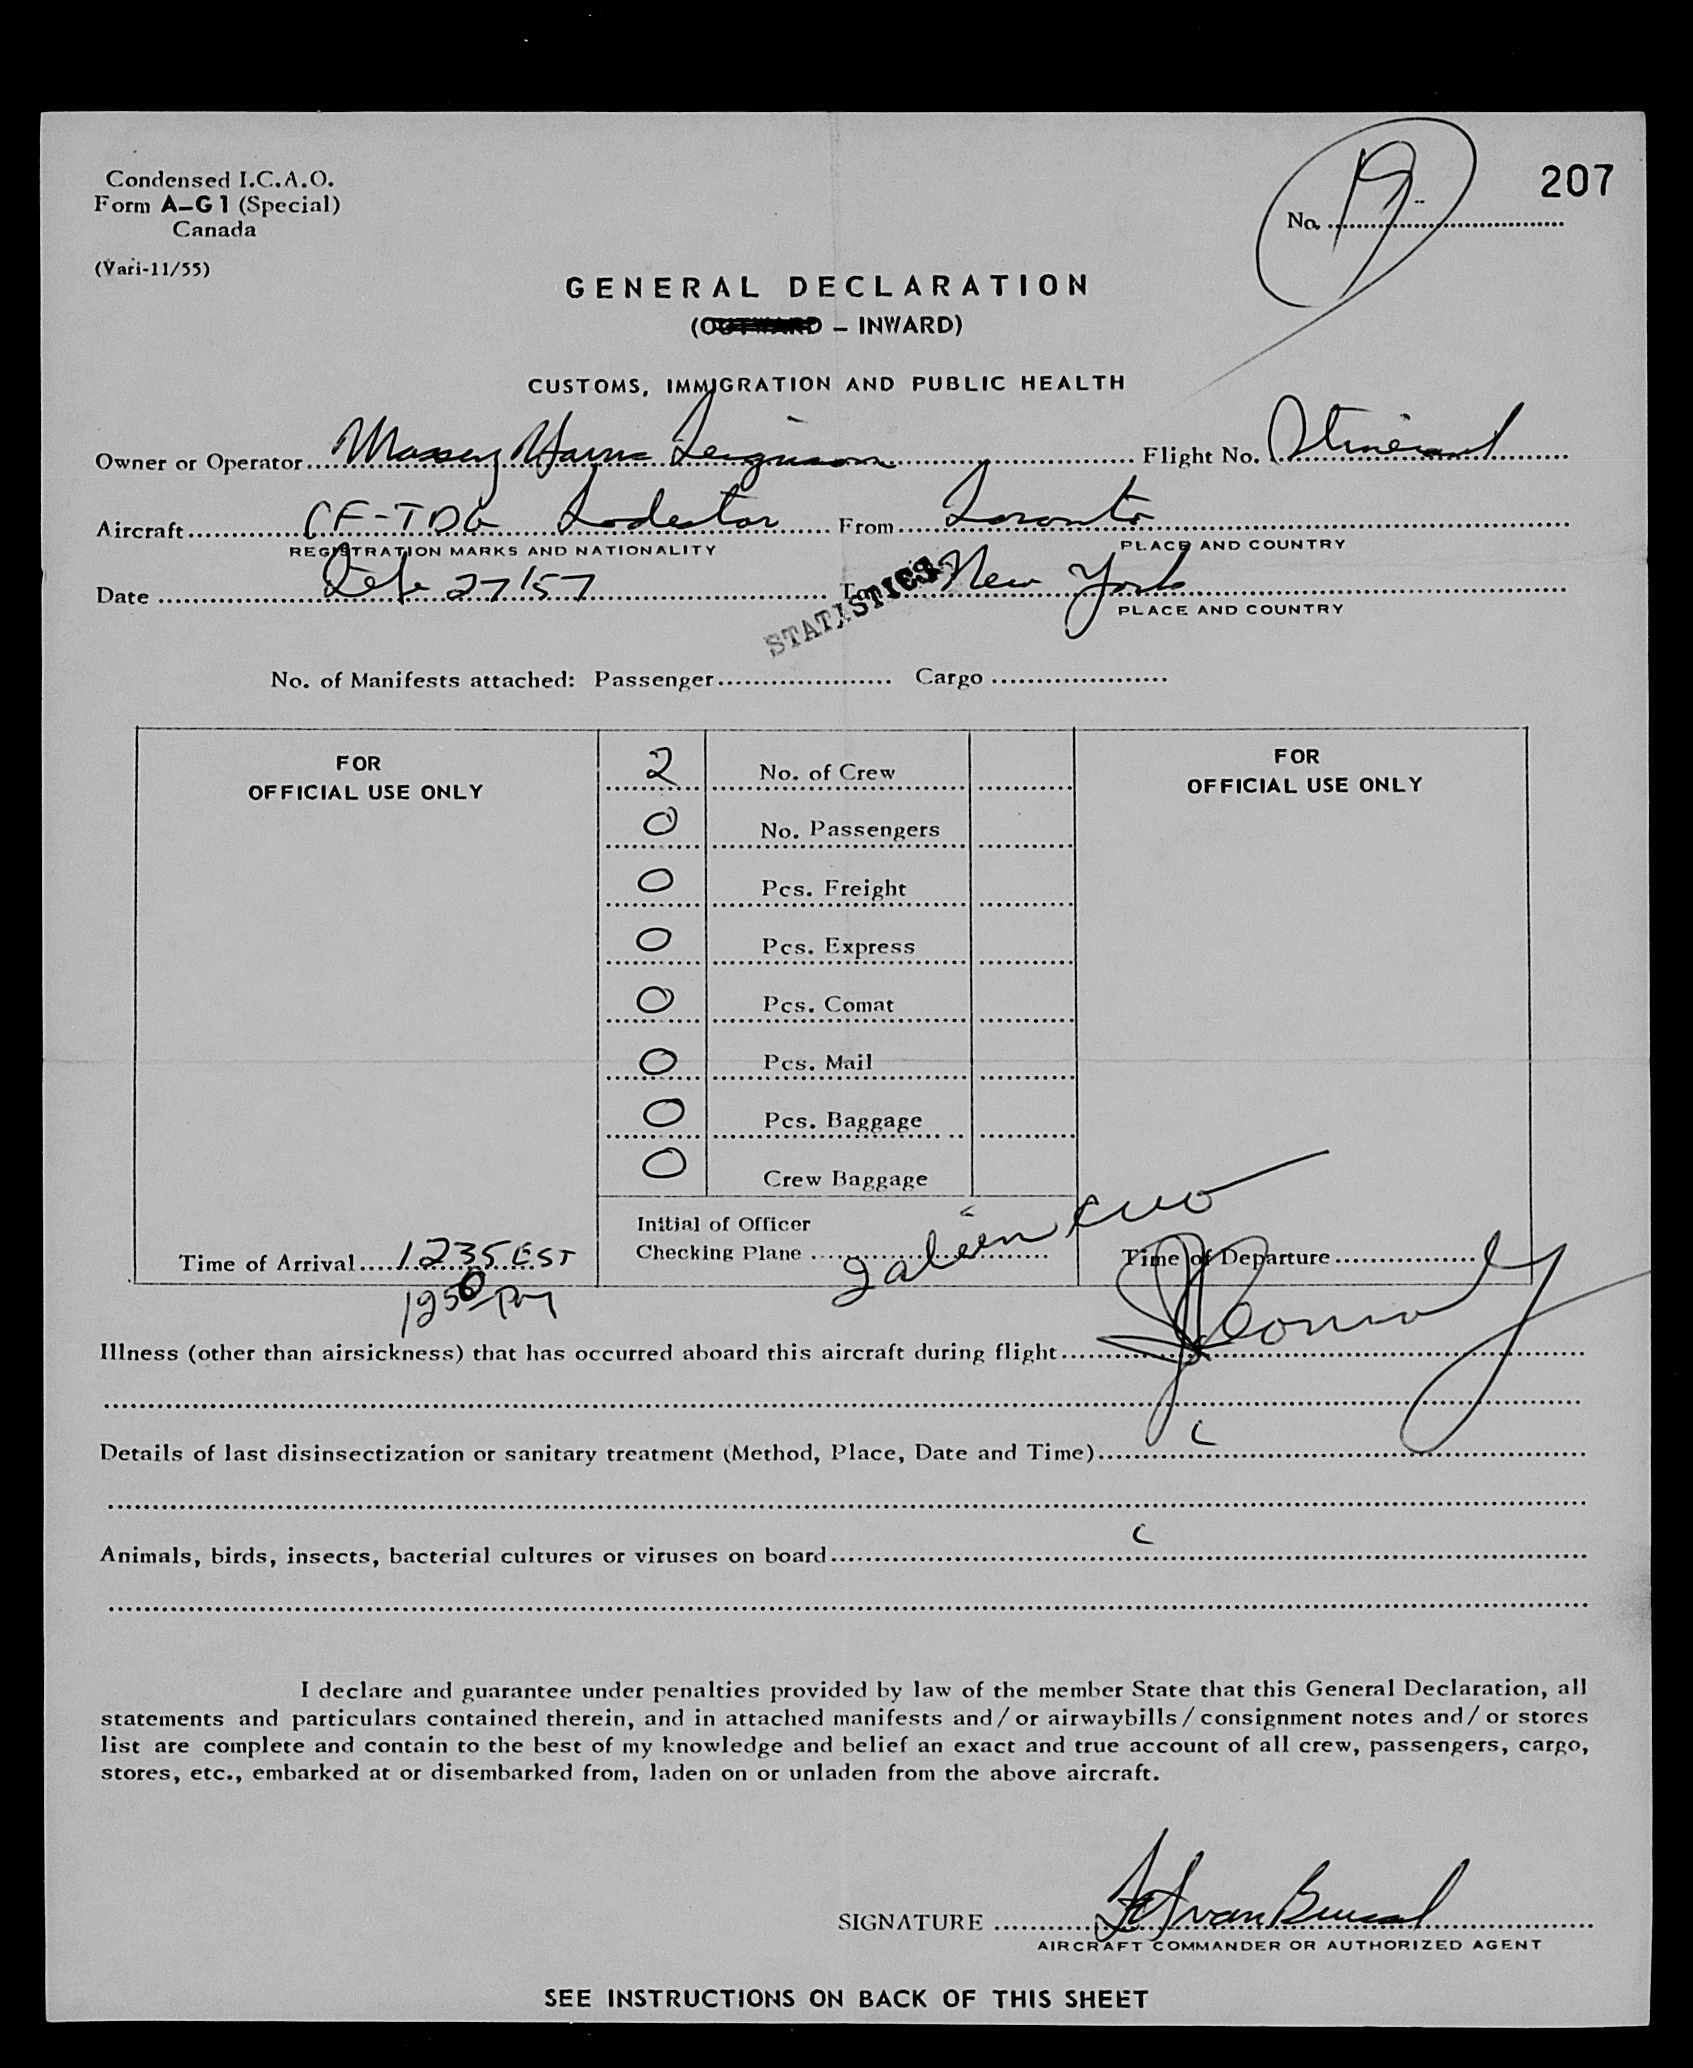 Condensed I.C.A.O.
Form A-G1 (Special)
Canada
(Vari-11/55)
207
No. 19
GENERAL DECLARATION
(OUTWARD – INWARD)
CUSTOMS, IMMIGRATION AND PUBLIC HEALTH
Owner or Operator Massey Harris Ferguson Flight No. Itinerant
Aircraft CF-TDG Lodestar From Toronto
REGISTRATION MARKS AND NATIONALITY PLACE AND COUNTRY
Date Feb 27/57 To New York
STATISTICS
PLACE AND COUNTRY
No. of Manifests attached: Passenger Cargo
FOR
OFFICIAL USE ONLY
2 No. of Crew
0 No. Passengers
0 Pcs. Freight
0 Pcs. Express
0 Pcs. Comat
0 Pcs. Mail
0 Pcs. Baggage
0 Crew Baggage
FOR
OFFICIAL USE ONLY
Initial of Officer
Checking Plane
Time of Arrival 1235 EST
1250 pm
Time of Departure
Illness (other than airsickness) that has occurred aboard this aircraft during flight
Details of last disinsectization or sanitary treatment (Method, Place, Date and Time)
Animals, birds, insects, bacterial cultures or viruses on board
I declare and guarantee under penalties provided by law of the member State that this General Declaration, all
statements and particulars contained therein, and in attached manifests and/or airwaybills/consignment notes and/or stores
list are complete and contain to the best of my knowledge and belief an exact and true account of all crew, passengers, cargo,
stores, etc., embarked at or disembarked from, laden on or unladen from the above aircraft.
SIGNATURE
AIRCRAFT COMMANDER OR AUTHORIZED AGENT
SEE INSTRUCTIONS ON BACK OF THIS SHEET